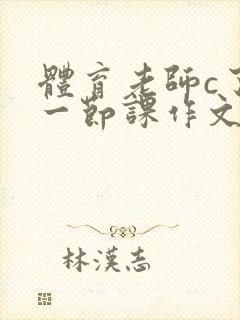 體育老師c
一節課作文
林漢志